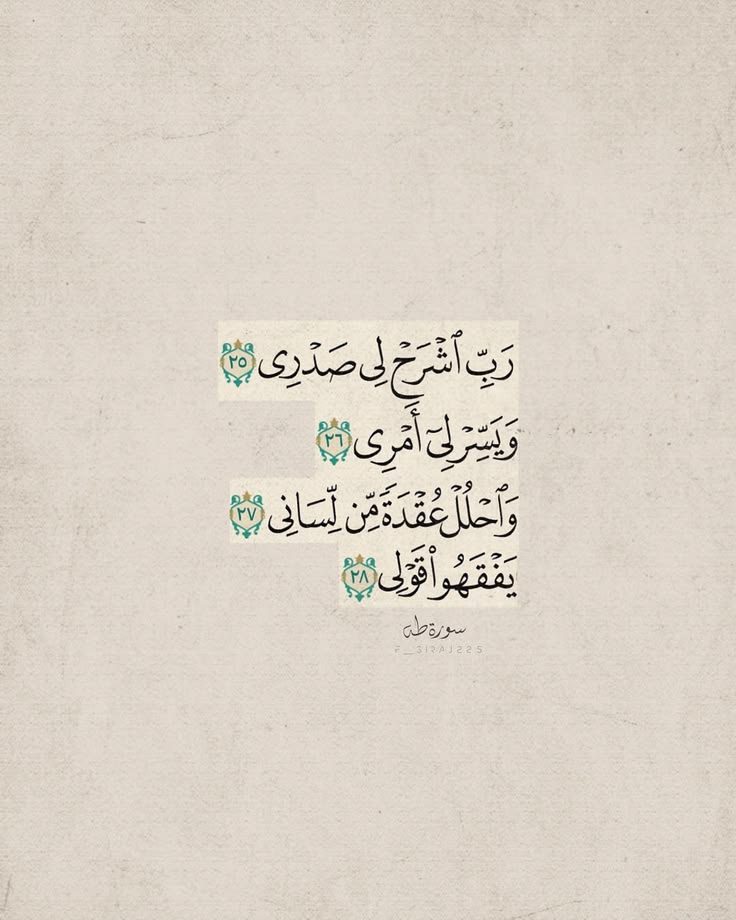 رَبِّ ٱشۡرَحۡ لِي صَدۡرِي ٢٥
وَيَسِّرۡ لِيٓ أَمۡرِي ٢٦
وَٱحۡلُلۡ عُقۡدَةٗ مِّن لِّسَانِي ٢٧
يَفۡقَهُواْ قَوۡلِي ٢٨
سورة طه